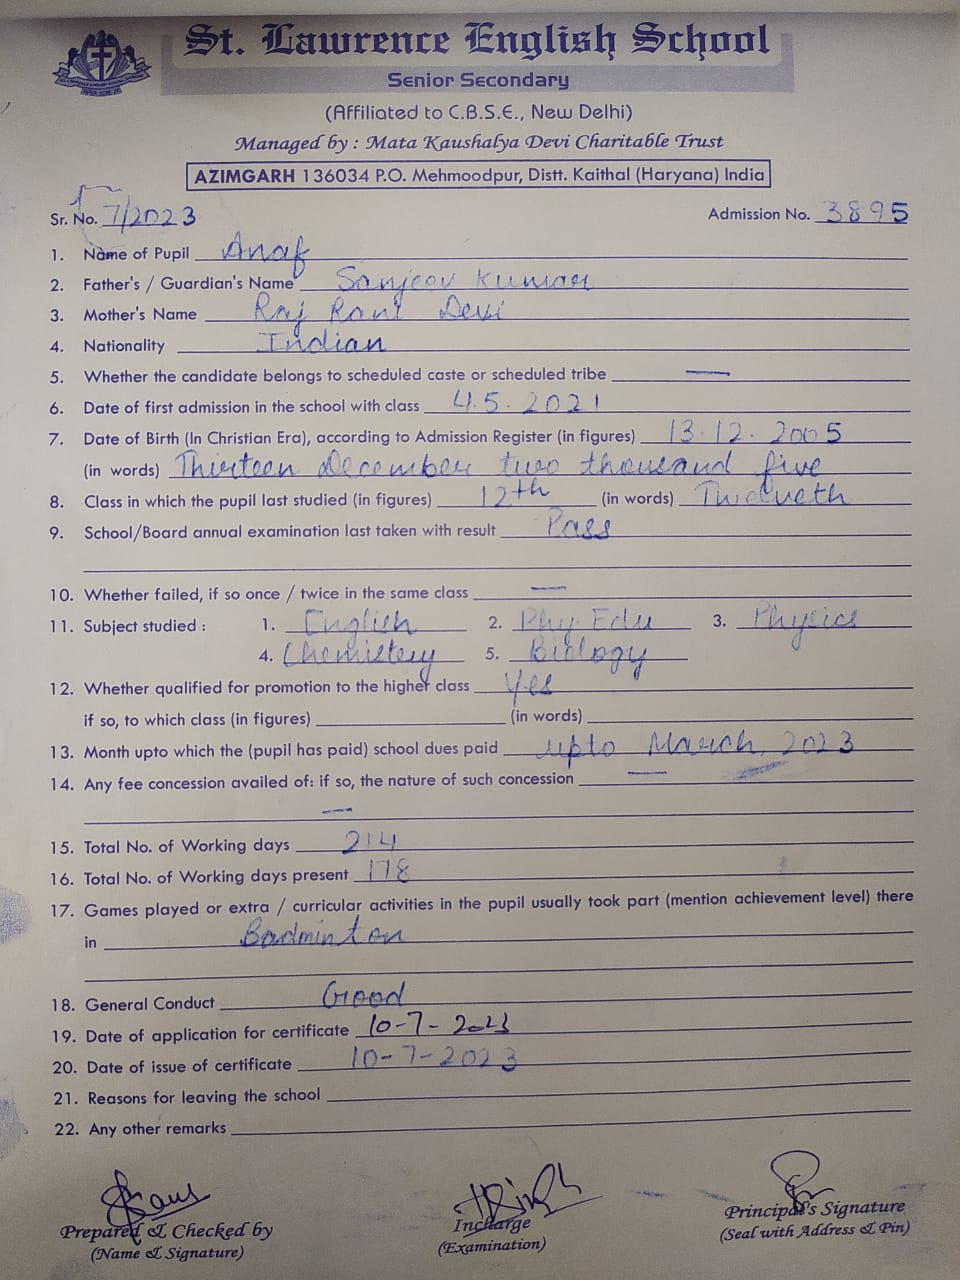 St. Lawrence English School
Senior Secondary
(Affiliated to C.B.S.E., New Delhi)
Managed by : Mata Kaushalya Devi Charitable Trust
AZIMGARH 136034 P.O. Mehmoodpur, Distt. Kaithal (Haryana) India
Sr. No. 7/2023 Admission No. 3895
1. Name of Pupil Anaf
2. Father's / Guardian's Name Sanjeev Kumar
3. Mother's Name Raj Rani Devi
4. Nationality Indian
5. Whether the candidate belongs to scheduled caste or scheduled tribe —
6. Date of first admission in the school with class 4.5.2021
7. Date of Birth (In Christian Era), according to Admission Register (in figures) 13.12.2005
(in words) Thirteen December two thousand five
8. Class in which the pupil last studied (in figures) 12th (in words) Twelveth
9. School/Board annual examination last taken with result Pass
10. Whether failed, if so once / twice in the same class —
11. Subject studied : 1. English 2. Phy. Edu 3. Physics
4. Chemistery 5. Biology
12. Whether qualified for promotion to the higher class Yes
if so, to which class (in figures) (in words)
13. Month upto which the (pupil has paid) school dues paid upto March, 2023
14. Any fee concession availed of: if so, the nature of such concession —
—
15. Total No. of Working days 214
16. Total No. of Working days present 178
17. Games played or extra / curricular activities in the pupil usually took part (mention achievement level) there
in Badminton
18. General Conduct Good
19. Date of application for certificate 10-7-2023
20. Date of issue of certificate 10-7-2023
21. Reasons for leaving the school
22. Any other remarks
Prepared & Checked by Incharge Principal's Signature
(Name & Signature) (Examination) (Seal with Address & Pin)